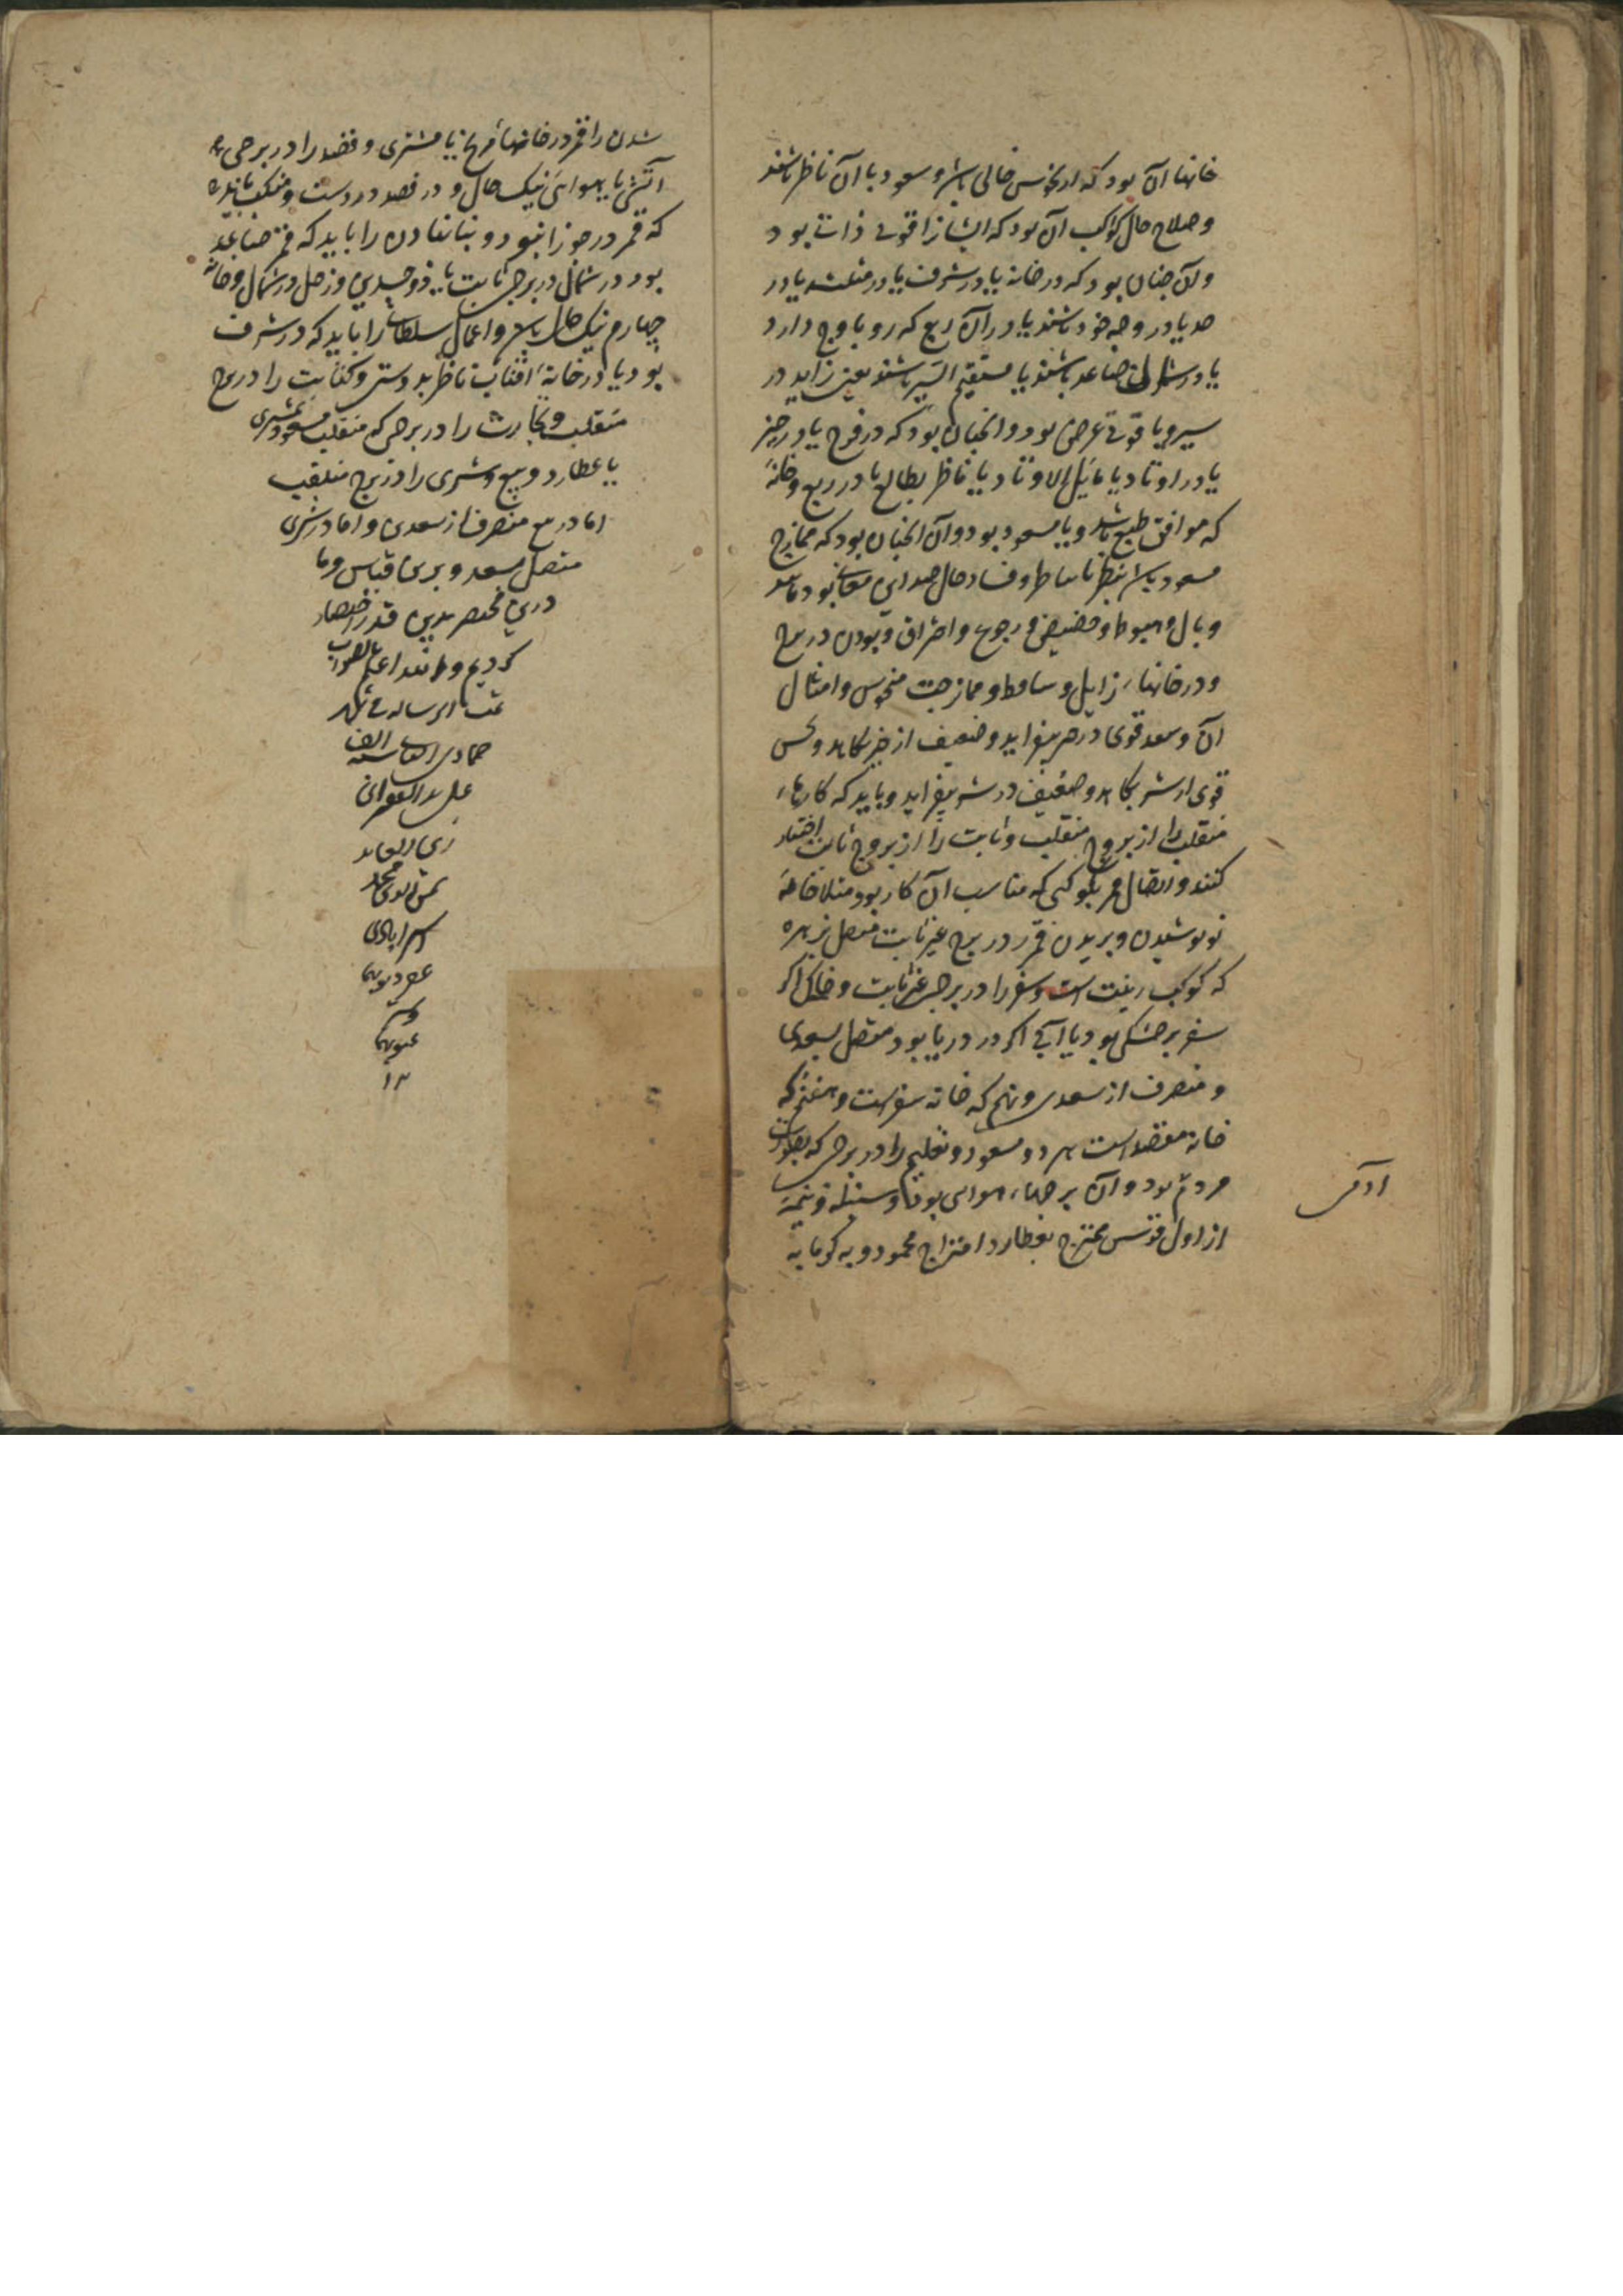 خانها آن بود که از نحوس خالی باشد و سعود با آن ناظر باشند
و صلاح حال کواکب آن بود که ایشانرا قوتی ذات بود
و آن چنان بود که در خانه یا در شرف یا در مثلثه یا در
حد یا در وجه خود باشند یا در آن ربع که رو باوج دارد
یا در شمال صاعد باشند یا مستقیم السیر باشند یعنی زاید در
سیر و یا قوتی عرضی بود و آنچنان بود که در فرح یا در حیز
یا در اوتاد یا مایل الاوتاد یا ناظر بطالع یا در ربع و خانهٔ
که موافق طبع باشد و یا مسعود بود و آن آنچنان بود که ممازج
مسعود باشد بنظر یا و فساد حال ضد این معانی بود مانند
وبال و هبوط و حضیض و رجوع و احتراق و بودن در برج
و در خانهاء زایل و ساقط و ممازجت منحوس و امثال
آن و سعد قوی در خیر بیفزاید و ضعیف از خیر بکاهد و نحس
قوی از شر بکاهد و ضعیف در شر بیفزاید و باید که کارهاء
منقلب را از بروج منقلب و ثابت را از بروج ثابت اختیار
کنند و اتصال قمر بکوکبی که مناسب آن کار بود مثلا جامهٔ
نو پوشیدن و بریدن قمر در برج غیر ثابت متصل بزهره
که کوکب زینت است و سفر را در برجی غیر ثابت و خاکی اگر
سفر بر خشکی بود یا آبی اگر در دریا بود متصل بسعدی
و منصرف از سعدی و نهم که خانه سفر است و هفتم که
خانه مقصد است هر دو مسعود و تعلیم را در برجی که بصورت
مردم بود و آن برجهاء هوایی بود و سنبله و نیمهٔ
از اول قوس ممتزج بعطارد امتزاج محمود و به کرمابه
شدن را قمر در خانهاء مریخ یا مشتری و فصد را در برجی
آتشی یا هوایی نیک حال و در فصد در دست و منکب باید
که قمر در جوزا نبود و بنا نهادن را باید که قمر صاعد
بود در شمال در برجی ثابت یا ذوجسدین و زحل در شمال و خانه
چهارم نیک حال باشد و اعمال سلطان را باید که در شرف
بود یا در خانهٔ آفتاب ناظر بدوستی و کتابت را در برج
منقلب و تجارت را در برجی که منقلب مسعود بمشتری
یا عطارد و بیع و شری را در برج منقلب
اما در بیع منصرف از سعدی و اما در شری
متصل بسعد و برین قیاس و ما
درین مختصر بدین قدر اختصار
کردیم والله اعلم بالصواب
تمت الرساله فی شهر
جمادی سنه الف
علی ید
زین العابد
شمس الدین محمد
استرابادی
غفر ذنوبهما
وستر
عیوبهما
۱۲